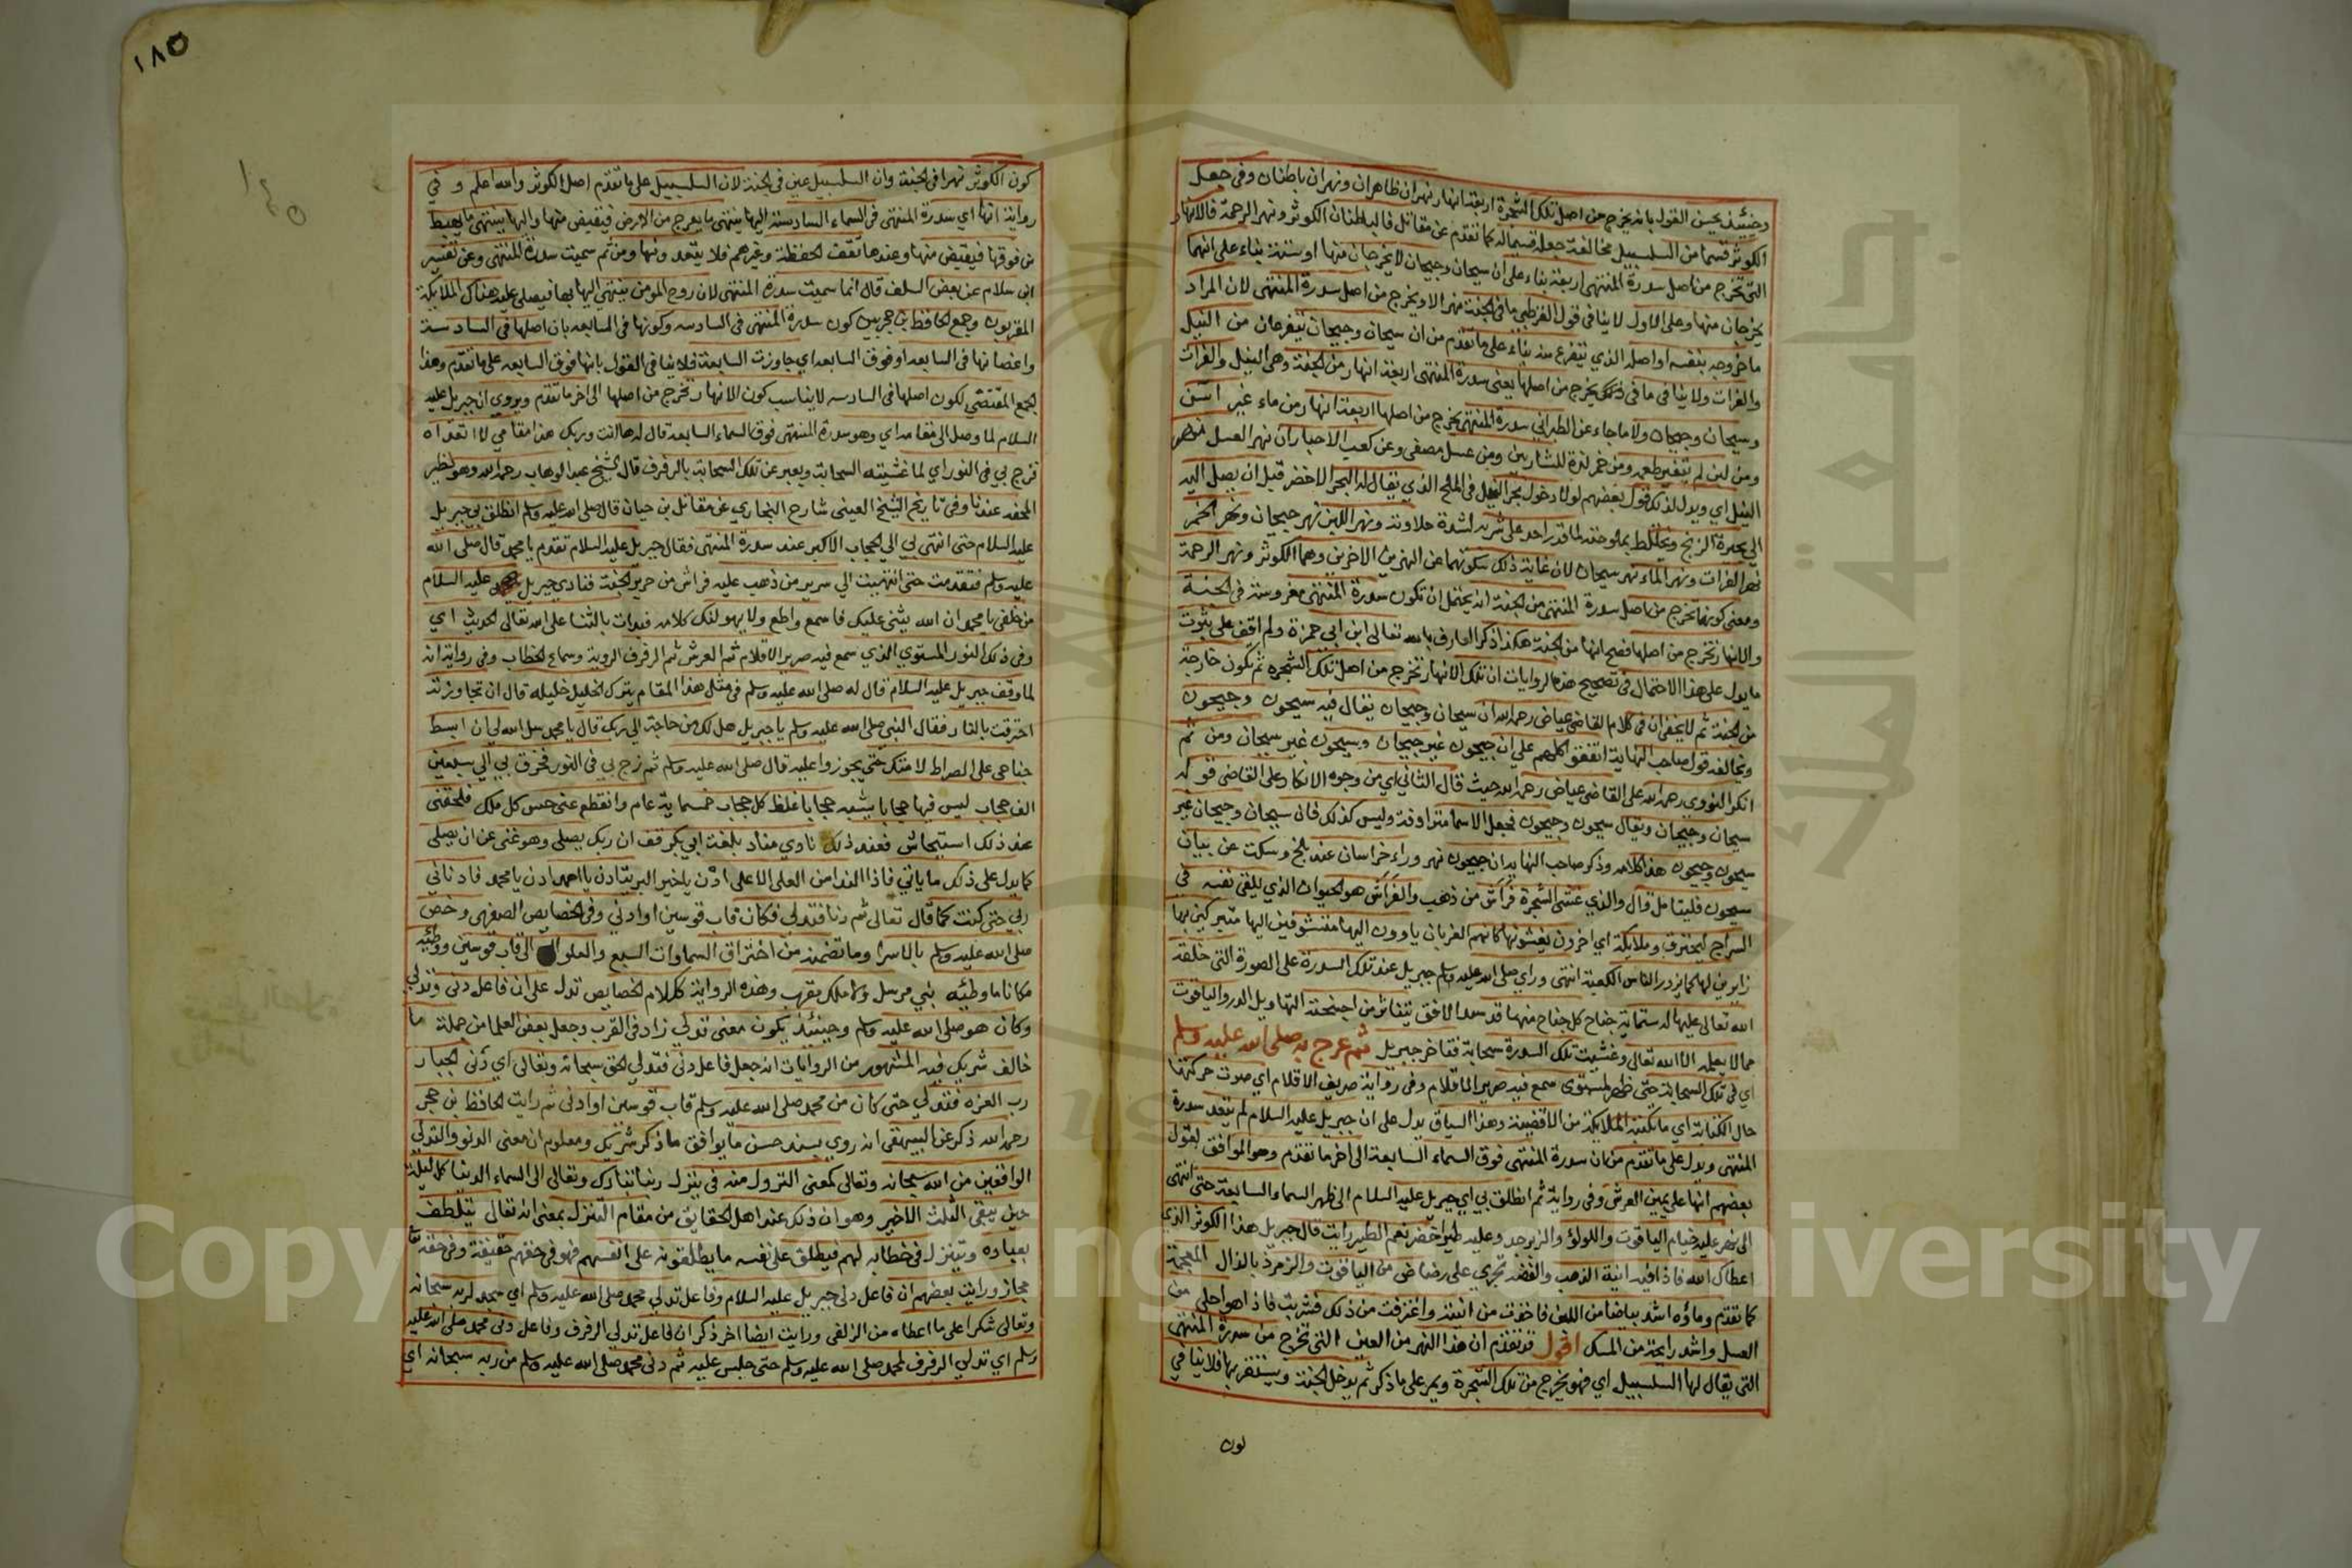 وحينئذ يحسن القول بانه يخرج من اصل تلك الشجرة اربعة انهار نهران ظاهران ونهران باطنان وفي جعل
الكوثر قسما من السلسبيل مخالفة جعله قسيما له كما تقدم عن مقاتل فالباطنان الكوثر ونهر الرحمة فالانهار
التي تخرج من اصل سدرة المنتهى اربعة بناء على ان سيحان وجيحان لا يخرجان منها او ستة بناء على انهما
يخرجان منها وعلى الاول لا ينافي قول القرطبي ما في الجنة نهر الا ويخرج من اصل سدرة المنتهى لان المراد
ما خروجه بنفسه او اصله الذي يتفرع منه بناء على ما تقدم من ان سيحان وجيحان يتفرعان من النيل
والفرات ولا ينافي ما في ذلك يخرج من اصلها يعني سدرة المنتهى اربعة انهار من الجنة وهي النيل والفرات
وسيحان وجيحان ولا ما جاء عن الطبراني سدرة المنتهى يخرج من اصلها اربعة انهار من ماء غير اسن
ومن لبن لم يتغير طعمه ومن خمر لذة للشاربين ومن عسل مصفى وعن كعب الاحبار ان نهر العسل نهر
النيل اي ويدل لذلك قول بعضهم لولا دخول بحر النيل في الملح الذي يقال له البحر الاخضر قبل ان يصل اليه
الي بحيرة الزنج ويختلط بملوحته لما قدر احد على شربه لشدة حلاوته ونهر اللبن نهر جيحان ونهر الخمر
نهر الفرات ونهر الماء نهر سيحان لان غاية ذلك سكوتهما عن النهرين الاخرين وهما الكوثر ونهر الرحمة
ومعنى كونها تخرج من اصل سدرة المنتهى من الجنة انه يحتمل ان تكون سدرة المنتهى مغروسة في الجنة
والانهار تخرج من اصلها فصح انها من الجنة هكذا ذكر العارف بالله تعالى ابن ابي جمرة ولم اقف على ثبوت
ما يدل على هذا الاحتمال في تصحيح هذه الروايات ان تلك الانهار تخرج من اصل تلك الشجره ثم تكون خارجة
من الجنة ثم لا يخفى ان في كلام القاضي عياض رحمه الله ان سيحان وجيحان يقال فيه سيحون وجيحون
ويخالفه قول صاحب النهاية اتفقوا كلهم على ان جيحون غير جيحان وسيحون غير سيحان ومن ثم
انكر النووي رحمه الله على القاضي عياض رحمه الله حيث قال الثاني اي من وجوه الانكار على القاضي قوله
سيحان وجيحان ويقال سيحون وجيحون فجعل الاسما مترادفة وليس كذلك فان سيحان وجيحان غير
سيحون وجيحون هذا كلامه وذكر صاحب النهاية ان جيحون نهر وراء خراسان عند بلخ وسكت عن بيان
سيحون فليتامل قال والذي غشي الشجرة فراش من ذهب والفراش هو الحيوان الذي يلقي نفسه في
السراج ليحترق وملايكة اي اخرون يغشونها كانهم الغربان ياوون اليها متشوقين اليها متبركين بها
زايرين لها كما يزور الناس الكعبة انتهى وراي صلى الله عليه وسلم جبريل عند تلك السدرة على الصورة التي خلقه
الله تعالى عليها له ستماية جناح كل جناح منها قد سد الافق يتناثر من اجنحته التهاويل الدر والياقوت
مما لا يعلمه الا الله تعالى وغشيت تلك السدرة سحابة فتاخر جبريل ثم عرج به صلى الله عليه وسلم
اي في تلك السحابة حتى ظهر لمستوى سمع فيه صرير الاقلام وفي رواية صريف الاقلام اي صوت حركتها
حال الكتابة اي ما تكتبه الملايكة من الاقضية وهذا السياق يدل على ان جبريل عليه السلام لم يتعد سدرة
المنتهى ويدل على ما تقدم من ان سدرة المنتهى فوق السماء السابعة الى اخر ما تقدم وهو الموافق لقول
بعضهم انها على يمين العرش وفي رواية ثم انطلق بي اي جبريل عليه السلام الى ظهر السماء السابعة حتى انتهى
الى نهر عليه خيام الياقوت واللولؤ والزبرجد وعليه طير اخضر نعم الطير رايت قال جبريل هذا الكوثر الذي
اعطاك الله فاذا فيه انية الذهب والفضة تجري على رضاض من الياقوت والزمرذ بالذال المعجمة
كما تقدم وماؤه اشد بياضا من اللبن فاخذت من انيته واغترفت من ذلك فشربت فاذا هو احلى من
العسل واشد رايحة من المسك اقول قد تقدم ان هذا النهر من العين التي تخرج من سدرة المنتهى
التي يقال لها السلسبيل اي فهو يخرج من تلك الشجرة ويمر على ما ذكر ثم يدخل الجنة ويستقر بها فلا ينافي
لون
١٨٥
كون الكوثر نهرا في الجنة وان السلسبيل عين في الجنة لان السلسبيل على ما تقدم اصل الكوثر والله اعلم وفي
رواية انها اي سدرة المنتهى في السماء السادسة اليها ينتهي ما يعرج من الارض فيقبض منها واليها ينتهي ما يهبط
من فوقها فيقبض منها وعندها تقف الحفظة وغيرهم فلا يتعدونها ومن ثم سميت سدرة المنتهى وعن تفسير
ابن سلام عن بعض السلف قال انما سميت سدرة المنتهى لان روح المومن ينتهي اليها بها فيصلي عليه هناك الملايكة
المقربون وجمع الحافظ بن حجر بين كون سدرة المنتهى في السادسه وكونها في السابعه بان اصلها في السادسة
واغصانها في السابعه او فوق السابعه اي جاوزت السابعة فلا ينافي القول بانها فوق السابعه على ما تقدم وهذا
الجمع المقتضي لكون اصلها في السادسه لا يناسب كون الانهار تخرج من اصلها الى اخر ما تقدم ويروى ان جبريل عليه
السلام لما وصل الى مقامه اي وهو سدرة المنتهى فوق السماء السابعه قال له ها انت وربك هذا مقامي لا اتعداه
فزج بي في النور اي لما غشيته السحابة ويعبر عن تلك السحابة بالرفرف قال الشيخ عبد الوهاب رحمه الله وهو نظير
المحفه عندنا وفي تاريخ الشيخ العيني شارح البخاري عن مقاتل بن حيان قال صلى الله عليه وسلم انطلق بي جبريل
عليه السلام حتى انتهى بي الى الحجاب الاكبر عند سدرة المنتهى فقال جبريل عليه السلام تقدم يا محمد قال صلى الله
عليه وسلم فتقدمت حتى انتهيت الي سرير من ذهب عليه فراش من حرير الجنة فنادى جبريل عليه السلام
من خلفي يا محمد ان الله يثني عليك فاسمع واطع ولا يهولنك كلامه فبدات بالثنا على الله تعالى الحديث اي
وفي ذلك النور المستوي الذي سمع فيه صرير الاقلام ثم العرش ثم الرفرف الروية وسماع الخطاب وفي رواية انه
لما وقف جبريل عليه السلام قال له صلى الله عليه وسلم في مثل هذا المقام يترك الخليل خليله قال ان تجاوزته
احترقت بالنار فقال النبي صلى الله عليه وسلم يا جبريل هل لك من حاجة الي ربك قال يا محمد سل الله لي ان ابسط
جناحي على الصراط لامتك حتى يجوزوا عليه قال صلى الله عليه وسلم ثم زج بي في النور فخرق بي الي سبعين
الف حجاب ليس فيها حجابا يشبه حجابا غلظ كل حجاب خمسماية عام وانقطع عني حس كل ملك فلحقني
عند ذلك استيحاش فعند ذلك نادى مناد بلغة ابي بكر قف ان ربك يصلي وهو غني عن ان يصلي
كما يدل على ذلك ما ياتي فاذا النداء من العلي الاعلى ادن يا خير البرية ادن يا احمد ادن يا محمد فادناني
ربي حتى كنت كما قال تعالى ثم دنا فتدلى فكان قاب قوسين او ادنى وفي الخصايص الصغرى وخص
صلى الله عليه وسلم بالاسرا وما تضمنه من اختراق السماوات السبع والعلو الى قاب قوسين ووطئه
مكانا ما وطئه نبي مرسل ولا ملك مقرب وهذه الرواية ككلام الخصايص تدل على ان فاعل دنى وتدلى
وكان هو صلى الله عليه وسلم وحينئذ يكون معنى تدلى زاد في القرب وجعل بعض العلما من جملة ما
خالف شريك فيه المشهور من الروايات انه جعل فاعل دنى فتدلى الحق سبحانه وتعالى اي دنى الجبار
رب العزه فتدلى حتى كان من محمد صلى الله عليه وسلم قاب قوسين او ادنى ثم رايت الحافظ بن حجر
رحمه الله ذكر عن البيهقي انه روى بسند حسن ما يوافق ما ذكر شريك ومعلوم ان معنى الدنو والتدلي
الواقعين من الله سبحانه وتعالى كمعنى النزول منه في ينزل ربنا تبارك وتعالى الى السماء الدنيا كل ليلة
حين يبقى الثلث الاخير وهو ان ذلك عند اهل الحقايق من مقام التنزل بمعنى انه تعالى يتلطف
بعباده ويتنزل في خطابه لهم فيطلق على نفسه ما يطلقونه على انفسهم فهو في حقهم حقيقة وفي حقه تعا
مجاز ورايت بعضهم ان فاعل دنى جبريل عليه السلام وفاعل تدلى محمد صلى الله عليه وسلم اي سجد لربه سبحانه
وتعالى شكرا على ما اعطاه من الزلفى ورايت ايضا اخر ذكر ان فاعل تدلى الرفرف وفاعل دنى محمد صلى الله عليه
وسلم اي تدلى الرفرف لمحمد صلى الله عليه وسلم حتى جلس عليه ثم دنى محمد صلى الله عليه وسلم من ربه سبحانه اي
Copyright © King Saud University